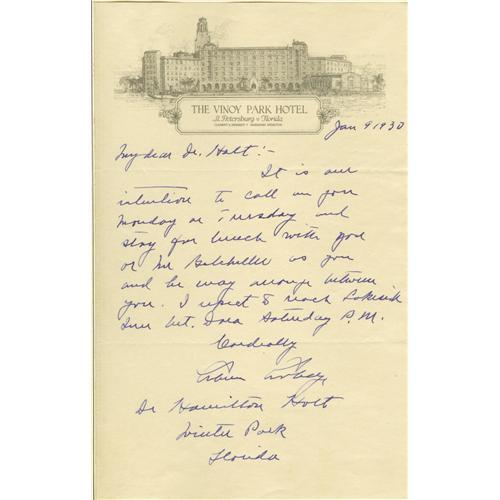 THE VINOY PARK HOTEL
St. Petersburg Florida
CLEMENT E. KENNEDY MANAGING DIRECTOR
Jan 9 1930
My dear Dr. Holt:-
It is our
intention to call on you
Monday or Tuesday and
stay for lunch with you
or Mr as you
and he may arrange between
you. I expect to reach Lakeside
Inn Mt. Dora Saturday P.M.
Cordially
Dr Hamilton Holt
Winter Park
Florida